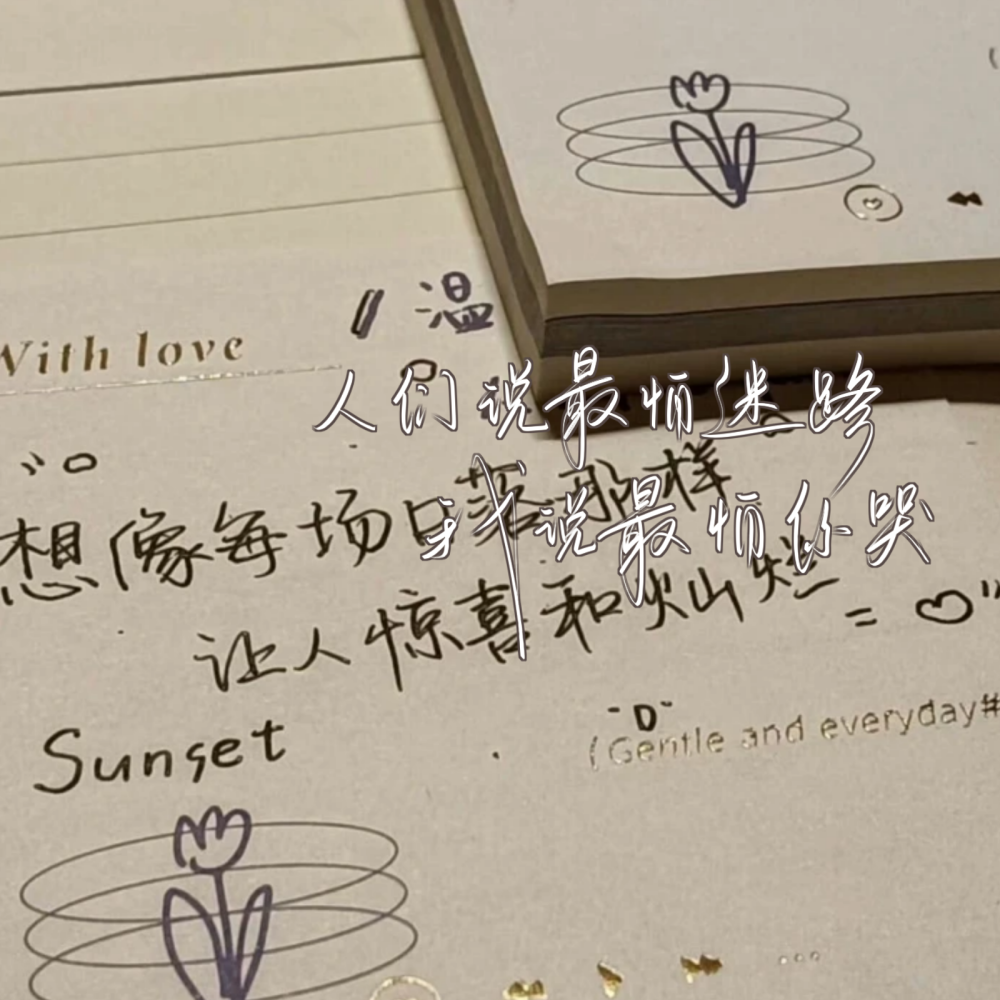 With love
温
人们说最怕迷路
我说最怕你哭
想像每场日落那样
让人惊喜和灿烂
Sunset
(Gentle and everyday#